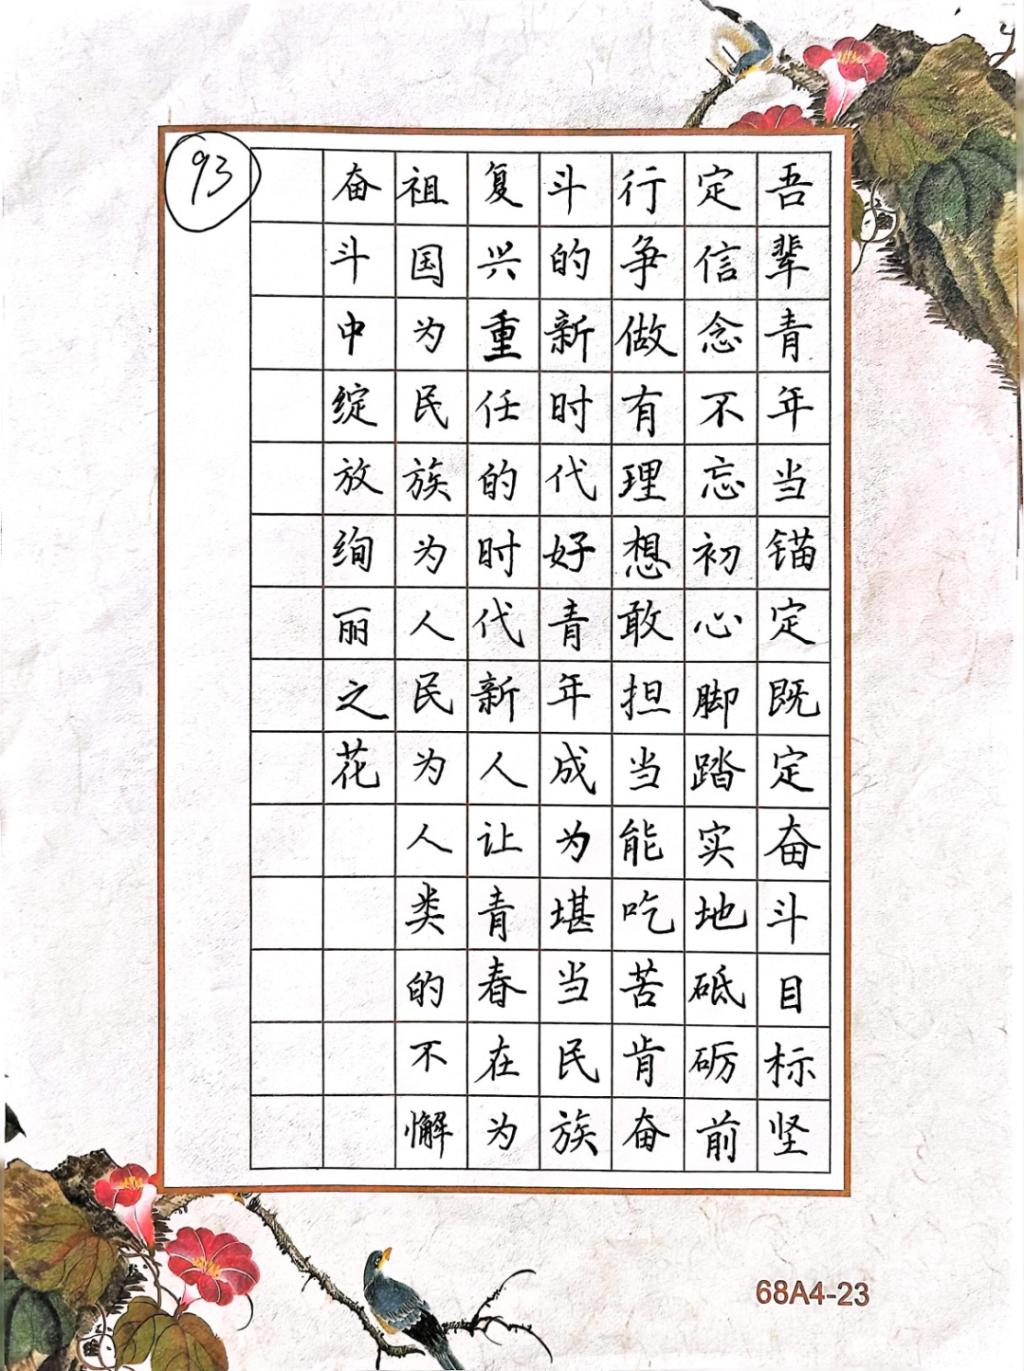 93
吾辈青年当锚定既定奋斗目标坚
定信念不忘初心脚踏实地砥砺前
行争做有理想敢担当能吃苦肯奋
斗的新时代好青年成为堪当民族
复兴重任的时代新人让青春在为
祖国为民族为人民为人类的不懈
奋斗中绽放绚丽之花
68A4-23